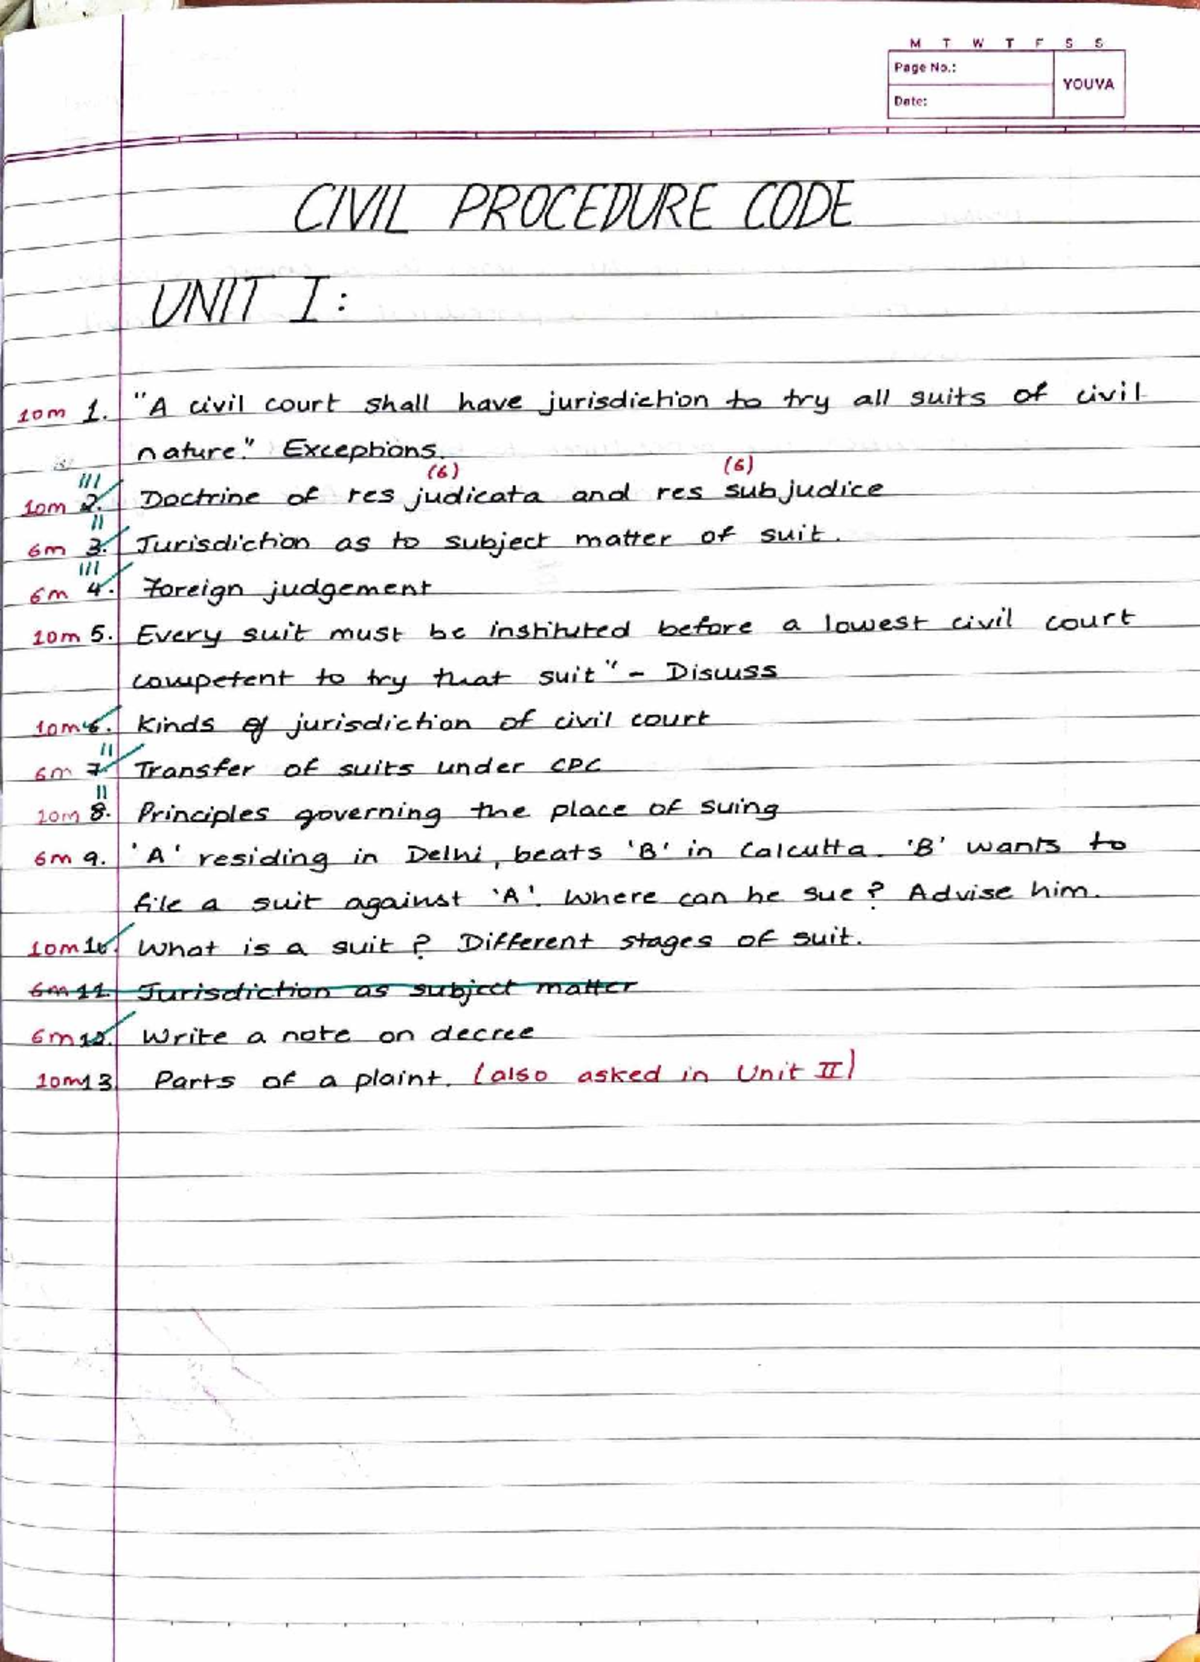 M T W T F S S
Page No.:
YOUVA
Date:
CIVIL PROCEDURE CODE
UNIT I:
10m 1. "A civil court shall have jurisdiction to try all suits of civil
nature." Exceptions.
(6) (6)
III
10m 2. Doctrine of res judicata and res subjudice
II
6m 3. Jurisdiction as to subject matter of suit.
III
6m 4. Foreign judgement
10m 5. Every suit must be instituted before a lowest civil court
competent to try that suit" - Discuss
10m 6. Kinds of jurisdiction of civil court
II
6m 7. Transfer of suits under CPC
II
10m 8. Principles governing the place of suing
6m 9. 'A' residing in Delhi, beats 'B' in Calcutta. 'B' wants to
file a suit against 'A'. Where can he sue? Advise him.
10m 10. What is a suit? Different stages of suit.
6m 11. Jurisdiction as subject matter
6m 12. Write a note on decree
10m 13. Parts of a plaint. (also asked in Unit II)